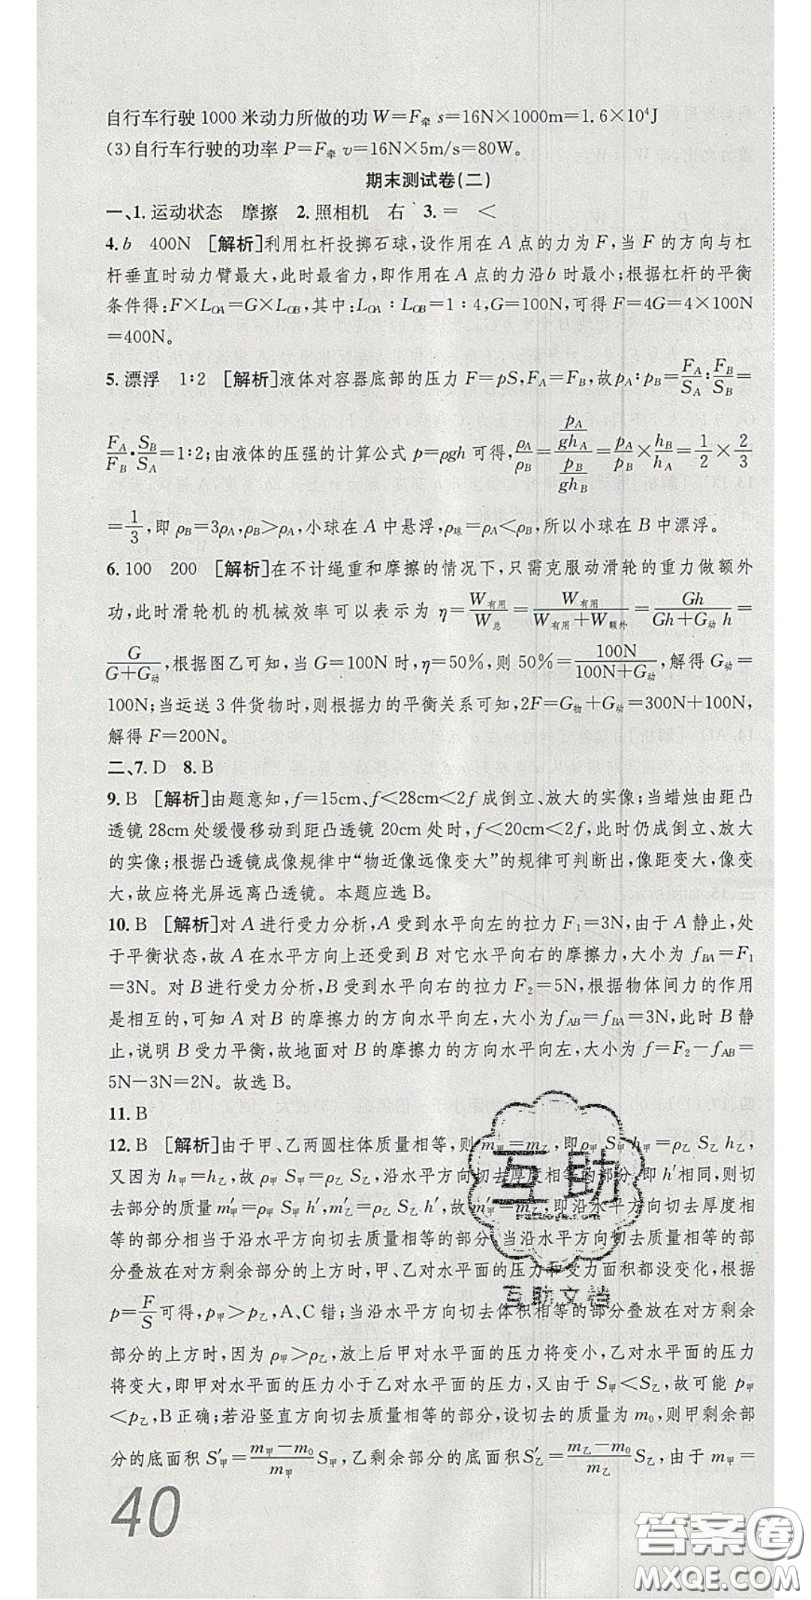 自行车行驶1000米动力所做的功W=F牵 s=16N×1000m=1.6×10⁴J
(3)自行车行驶的功率P=F牵 v=16N×5m/s=80W。
期末测试卷(二)
一、1.运动状态 摩擦 2.照相机 右 3.= <
4.b 400N [解析]利用杠杆投掷石球,设作用在A点的力为F,当F的方向与杠
杆垂直时动力臂最大,此时最省力,即作用在A点的力沿b时最小;根据杠杆的平衡
条件得:F×L_OA=G×L_OB,其中:L_OA∶L_OB=1∶4,G=100N,可得F=4G=4×100N
=400N。
5.漂浮 1∶2 [解析]液体对容器底部的压力F=pS,F_A=F_B,故p_A∶p_B=F_A/S_A∶F_B/S_B=
F_A/F_B·S_B/S_A=1∶2;由液体的压强的计算公式p=ρgh可得,ρ_A/ρ_B=(p_A/gh_A)/(p_B/gh_B)=p_A/p_B×h_B/h_A=1/2×2/3
=1/3,即ρ_B=3ρ_A,ρ_B>ρ_A,小球在A中悬浮,ρ球=ρ_A<ρ_B,所以小球在B中漂浮。
6.100 200 [解析]在不计绳重和摩擦的情况下,只需克服动滑轮的重力做额外
功,此时滑轮机的机械效率可以表示为η=W有用/W总=W有用/(W有用+W额外)=Gh/(Gh+G动h)=
G/(G+G动),根据图乙可知,当G=100N时,η=50%,则50%=100N/(100N+G动),解得G动=
100N;当运送3件货物时,则根据力的平衡关系可知,2F=G物+G动=300N+100N,
解得F=200N。
二、7.D 8.B
9.B [解析]由题意知,f=15cm、f<28cm<2f成倒立、放大的实像;当蜡烛由距凸
透镜28cm处缓慢移动到距凸透镜20cm处时,f<20cm<2f,此时仍成倒立、放大
的实像;根据凸透镜成像规律中“物近像远像变大”的规律可判断出,像距变大,像变
大,故应将光屏远离凸透镜。本题应选B。
10.B [解析]对A进行受力分析,A受到水平向左的拉力F₁=3N,由于A静止,处
于平衡状态,故A在水平方向上还受到B对它水平向右的摩擦力,大小为f_BA=F₁
=3N。对B进行受力分析,B受到水平向右的拉力F₂=5N,根据物体间力的作用
是相互的,可知A对B的摩擦力的方向水平向左,大小为f_AB=f_BA=3N,此时B静
止,说明B受力平衡,故地面对B的摩擦力的方向水平向左,大小为f=F₂-f_AB=
5N-3N=2N。故选B。
11.B
12.B [解析]由于甲、乙两圆柱体质量相等,则m甲=m乙,即ρ甲 S甲 h甲=ρ乙 S乙 h乙,
又因为h甲=h乙,故ρ甲 S甲=ρ乙 S乙,沿水平方向切去厚度相等的部分,即h′相同,则切
去的质量m′甲=ρ甲 S甲 h′,m′乙=ρ乙 S乙 h′,故m′甲=m′乙,即沿水平方向切去厚度相
等的部分相当于沿水平方向切去质量相等的部分;当沿水平方向切去厚度相等的
部分叠放在对方剩余部分的上方时,甲、乙对水平面的压力和受力面积都没变化,根据
p=F/S可得,p甲>p乙,A、C错;当沿水平方向切去体积相等的部分叠放在对方剩余
部分的上方时,因为ρ甲>ρ乙,故上放后甲对水平面的压力将变小,乙对水平面的压力
将变大,即甲对水平面的压力小于乙对水平面的压力,又由于S甲<S乙,故可能p甲
<p乙,B正确;若沿竖直方向切去质量相等的部分,设切去的质量为m₀,则甲剩余部
分的底面积S′甲=(m甲-m₀)/m甲 S甲,乙剩余部分的底面积S′乙=(m乙-m₀)/m乙 S乙,由于m甲=
40
互助
互助文档
答案圈
MXQE.COM